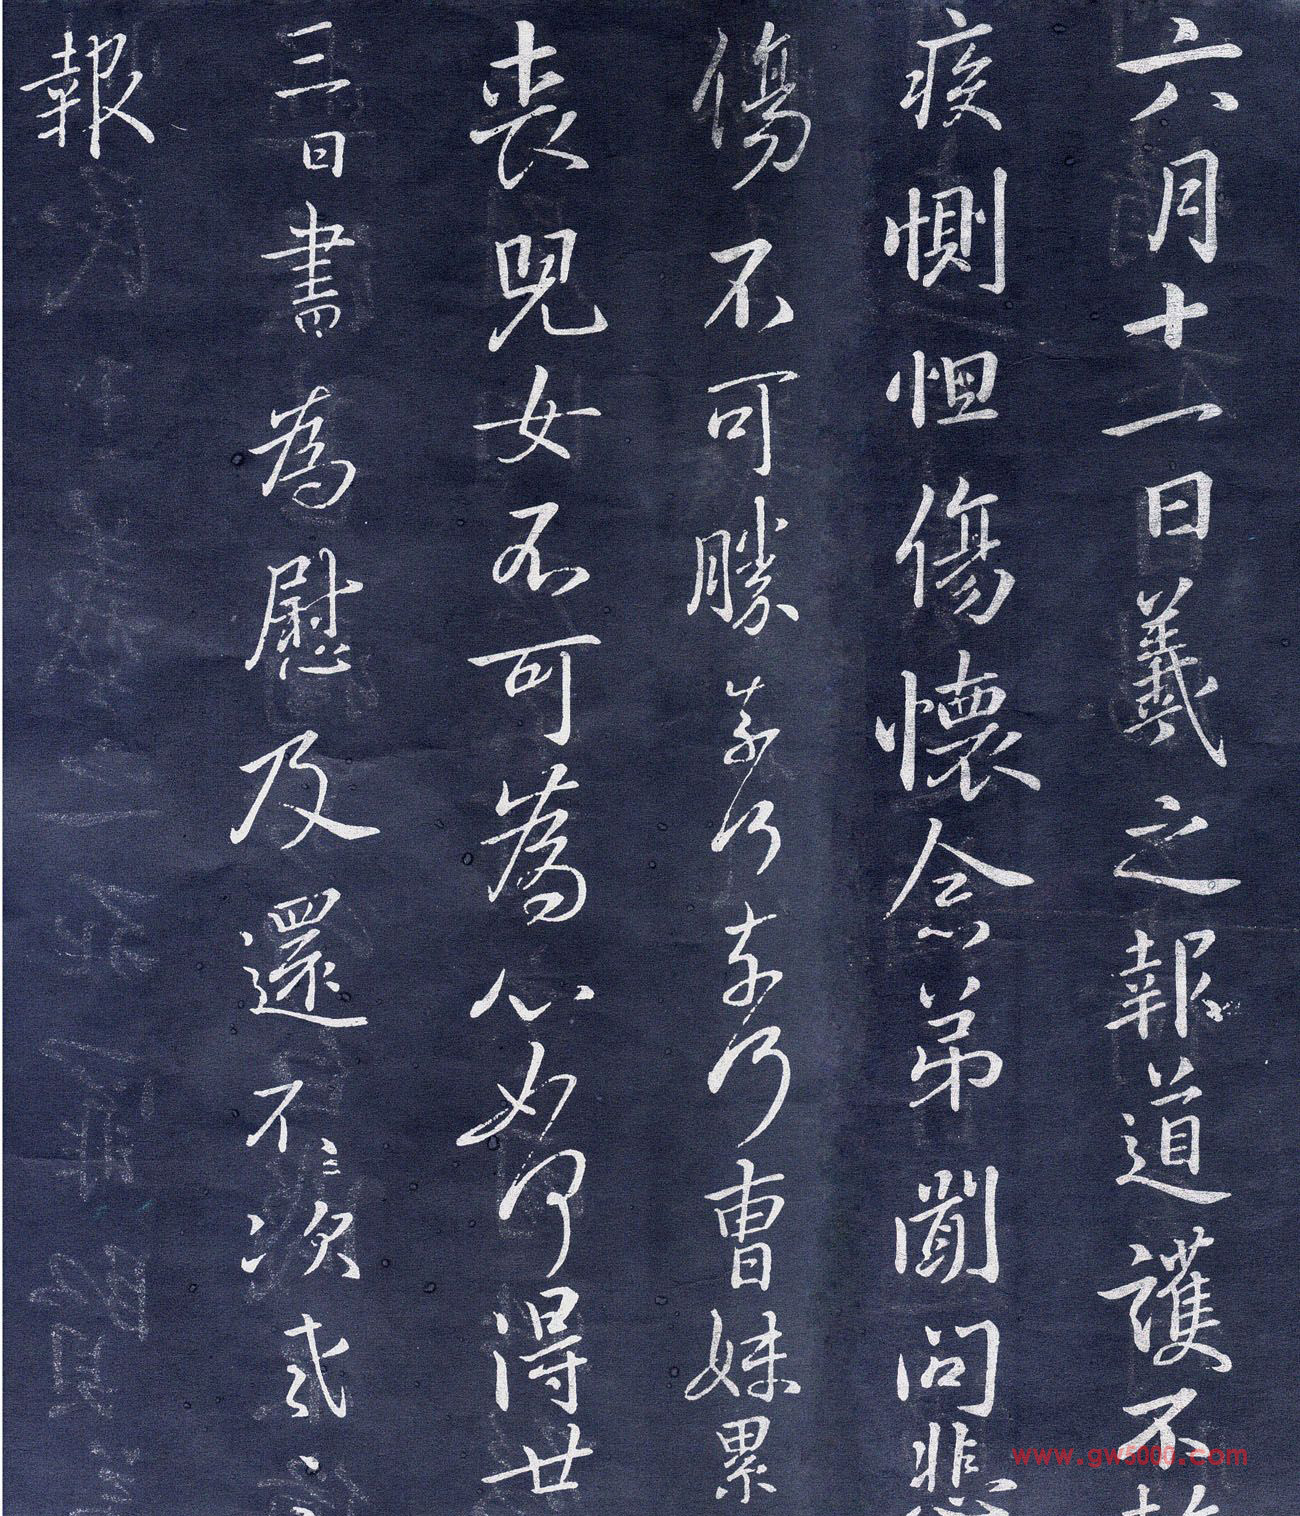 六月十一日羲之報道護不
疾惻怛傷懷念弟聞問悲
傷不可勝奈何奈何曹妹累
喪兒女不可為心如何得廿
三日書為慰及還不次羲之
報
www.gw5000.com